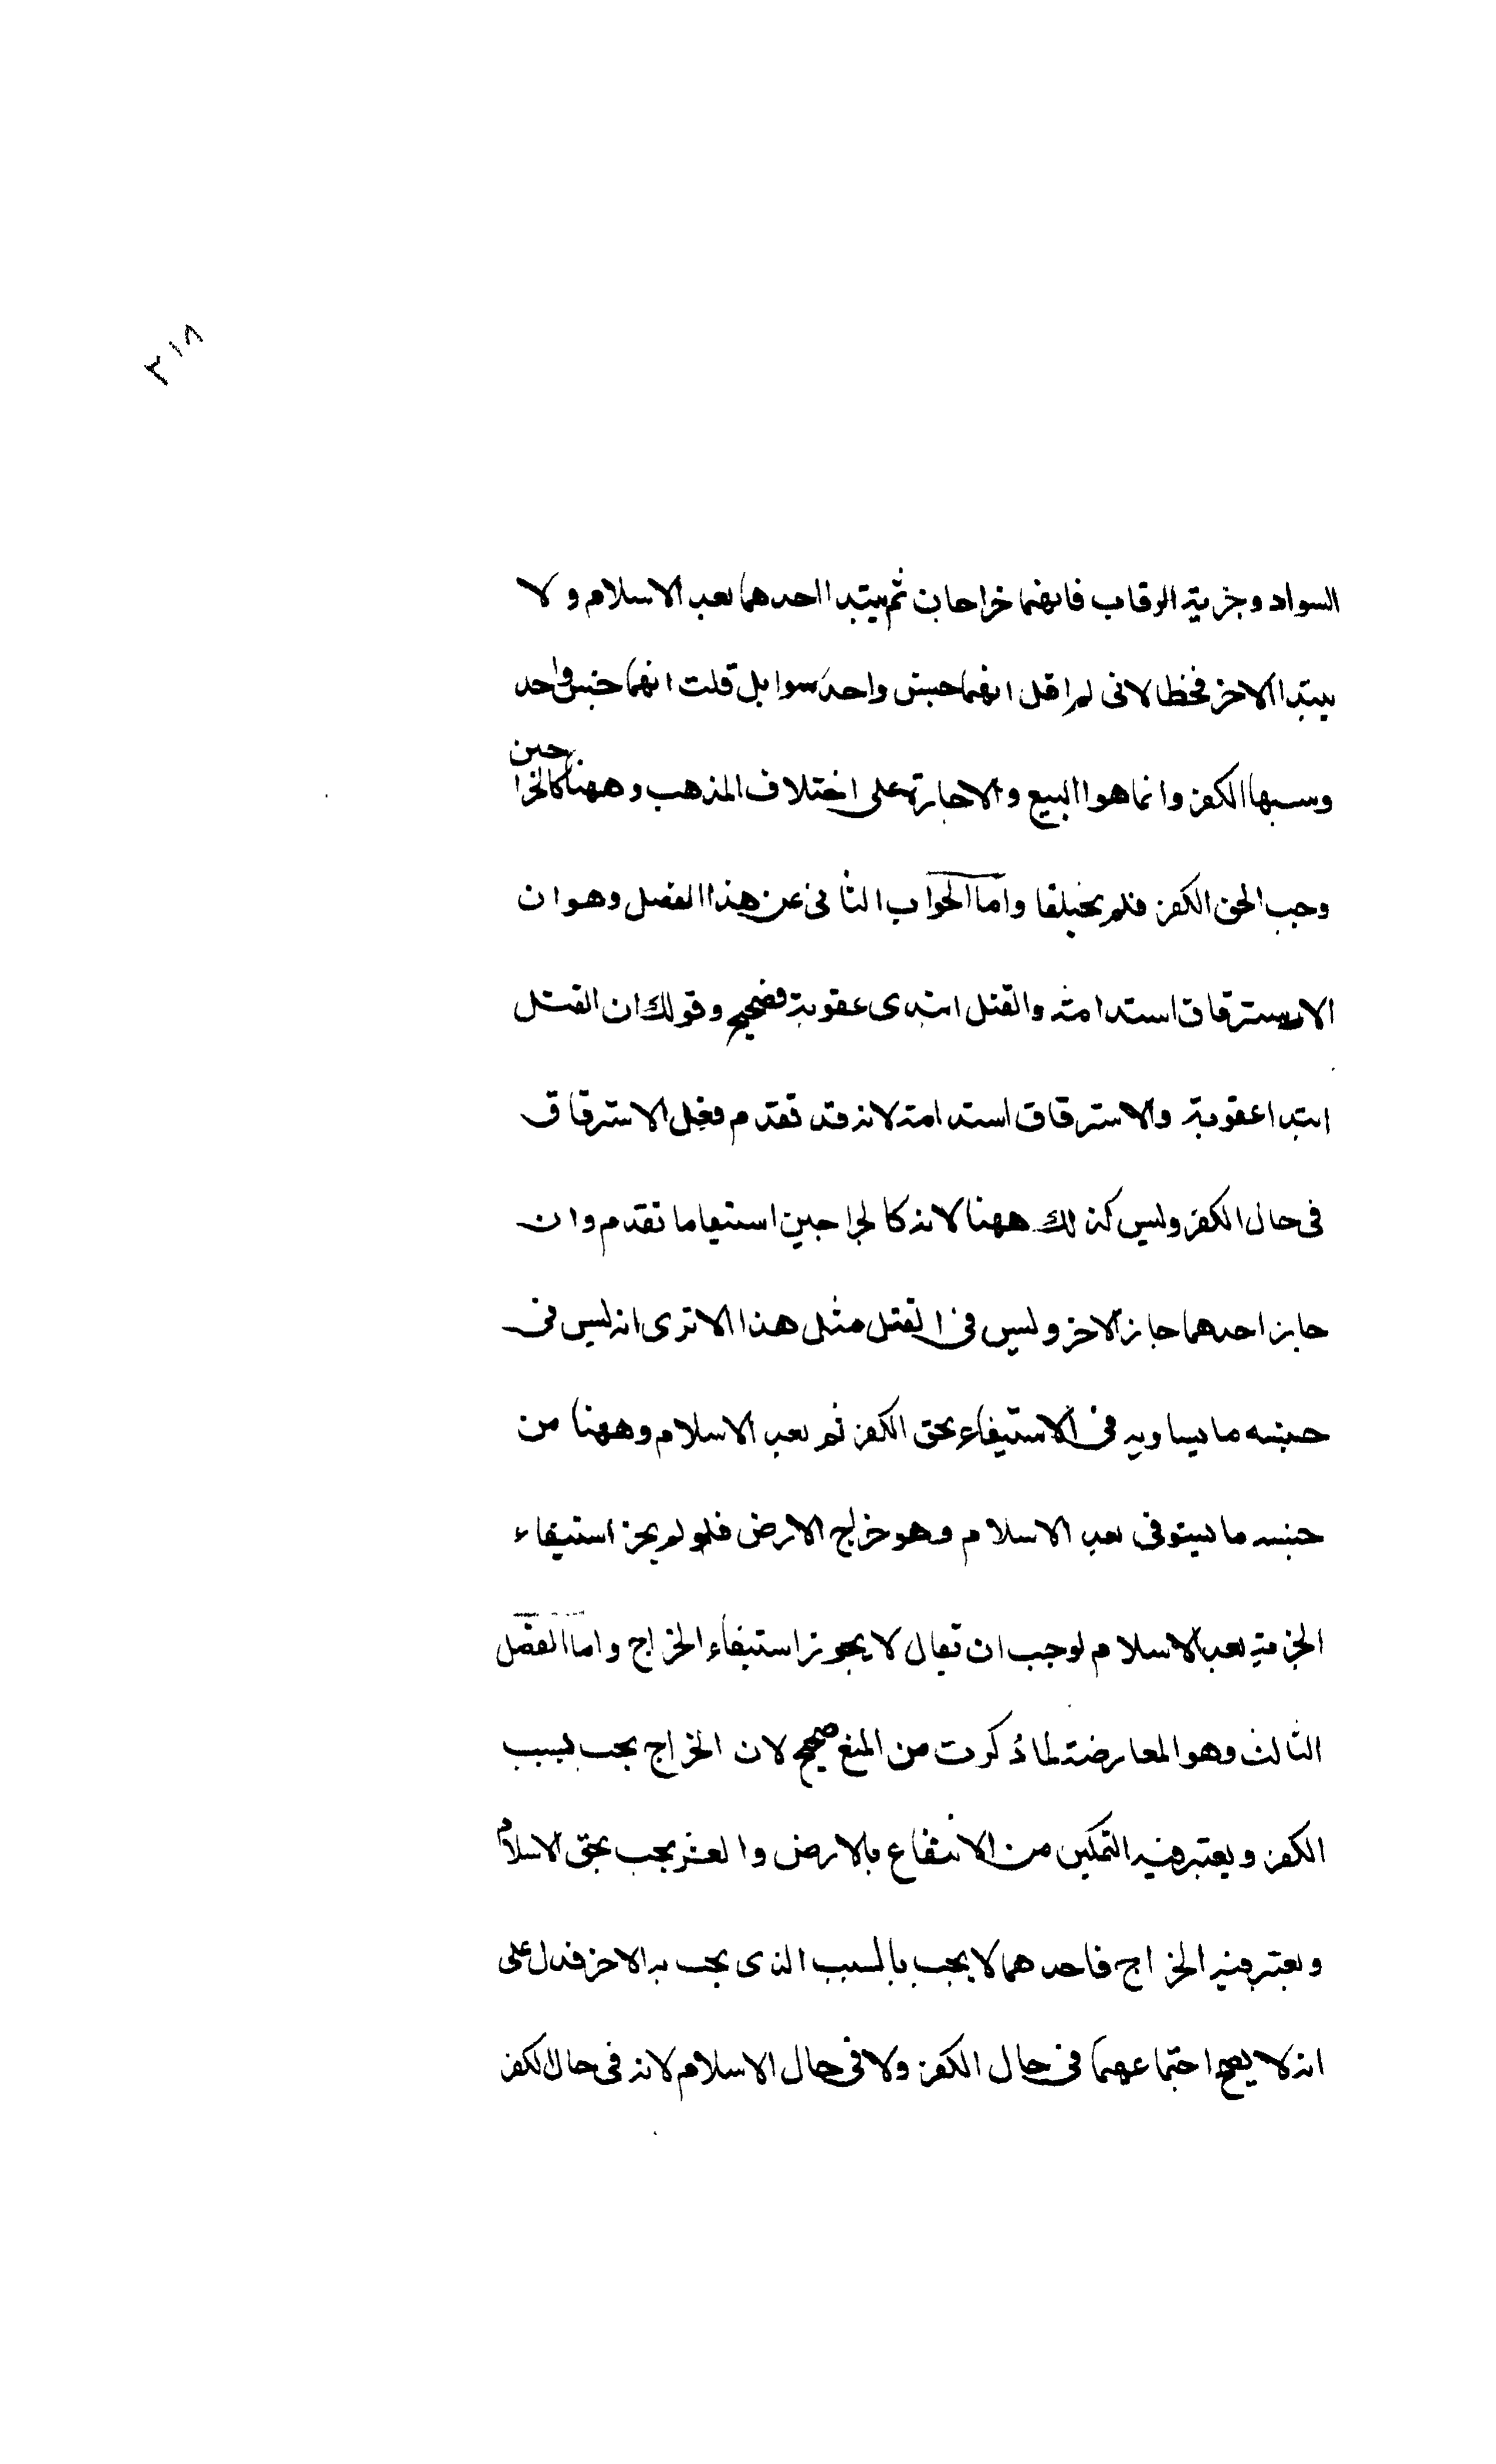 ٢١٨
السواد وجزية الرقاب فانهما خراجان ثم يبتدا احدهما بعد الاسلام ولا
يبتدا الاخر فخطا لانى لم اقل انهما جنس واحد سوا بل قلت انهما جنس واحد
وسببها الكفر وانما هو البيع والاجارة على اختلاف المذهب وههنا كالخراجين
وجب الحق الكفر فلم يختلفا واما الجواب الثانى عن هذا الفصل وهو ان
الاسترقاق استدامة والقتل ابتدى عقوبة فصحيح وقولك ان القتل
ابتدا عقوبة والاسترقاق استدامة لانه قد تقدم فعل الاسترقاق
فى حال الكفر وليس كذلك ههنا لانه كالجراجين استيفا ما تقدم وان
جاز احدهما جاز الاخر وليس فى القتل مثل هذا الاترى انه ليس فى
جنسه ما يساويه فى الاستيفاء بحق الكفر ثم بعد الاسلام وههنا من
جنسه ما يستوفى بعد الاسلام وهو خراج الارض فلو لم يجز استيفاء
الجزية بعد الاسلام لوجب ان يقال لا يجوز استيفاء الخراج واما الفصل
الثالث وهو المعارضة لما ذكرت من المنع صحيح لان الخراج يجب بسبب
الكفر ويعتبر فيه التمكين من الانتفاع بالارض والعشر يجب بحق الاسلام
ويعتبر فيه الخراج فاحدهما لا يجب بالسبب الذى يجب به الاخر فدل على
انه لا يصح اجتماعهما فى حال الكفر ولا فى حال الاسلام لانه فى حال الكفر